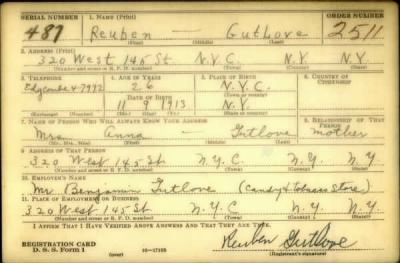 SERIAL NUMBER 1. NAME (Print) ORDER NUMBER
487 Reuben — Gutlove 2511
(First) (Middle) (Last)
2. ADDRESS (Print)
320 West 145 St N.Y.C. N.Y. N.Y.
(Number and street or R. F. D. number) (Town) (County) (State)
3. TELEPHONE 4. AGE IN YEARS 5. PLACE OF BIRTH 6. COUNTRY OF CITIZENSHIP
Edgcombe 4-7992 26 N.Y.C.
DATE OF BIRTH (Town or county)
11 9 1913 N.Y.
(Exchange) (Number) (Mo.) (Day) (Yr.) (State or country)
7. NAME OF PERSON WHO WILL ALWAYS KNOW YOUR ADDRESS 8. RELATIONSHIP OF THAT PERSON
Mrs. Anna — Gutlove mother
(Mr., Mrs., Miss) (First) (Middle) (Last)
9. ADDRESS OF THAT PERSON
320 West 145 St N.Y.C N.Y. N.Y
(Number and street or R. F. D. number) (Town) (County) (State)
10. EMPLOYER'S NAME
Mr Benjamin Gutlove (Candy & tobacco store)
11. PLACE OF EMPLOYMENT OR BUSINESS
320 West 145 St N.Y.C N.Y. N.Y
(Number and street or R. F. D. number) (Town) (County) (State)
I AFFIRM THAT I HAVE VERIFIED ABOVE ANSWERS AND THAT THEY ARE TRUE.
REGISTRATION CARD Reuben Gutlove
D. S. S. Form 1 (over) 16—17105 (Registrant's signature)